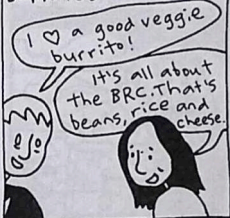 I ♡ a good veggie
burrito!
It's all about
the BRC. That's
beans, rice and
cheese.